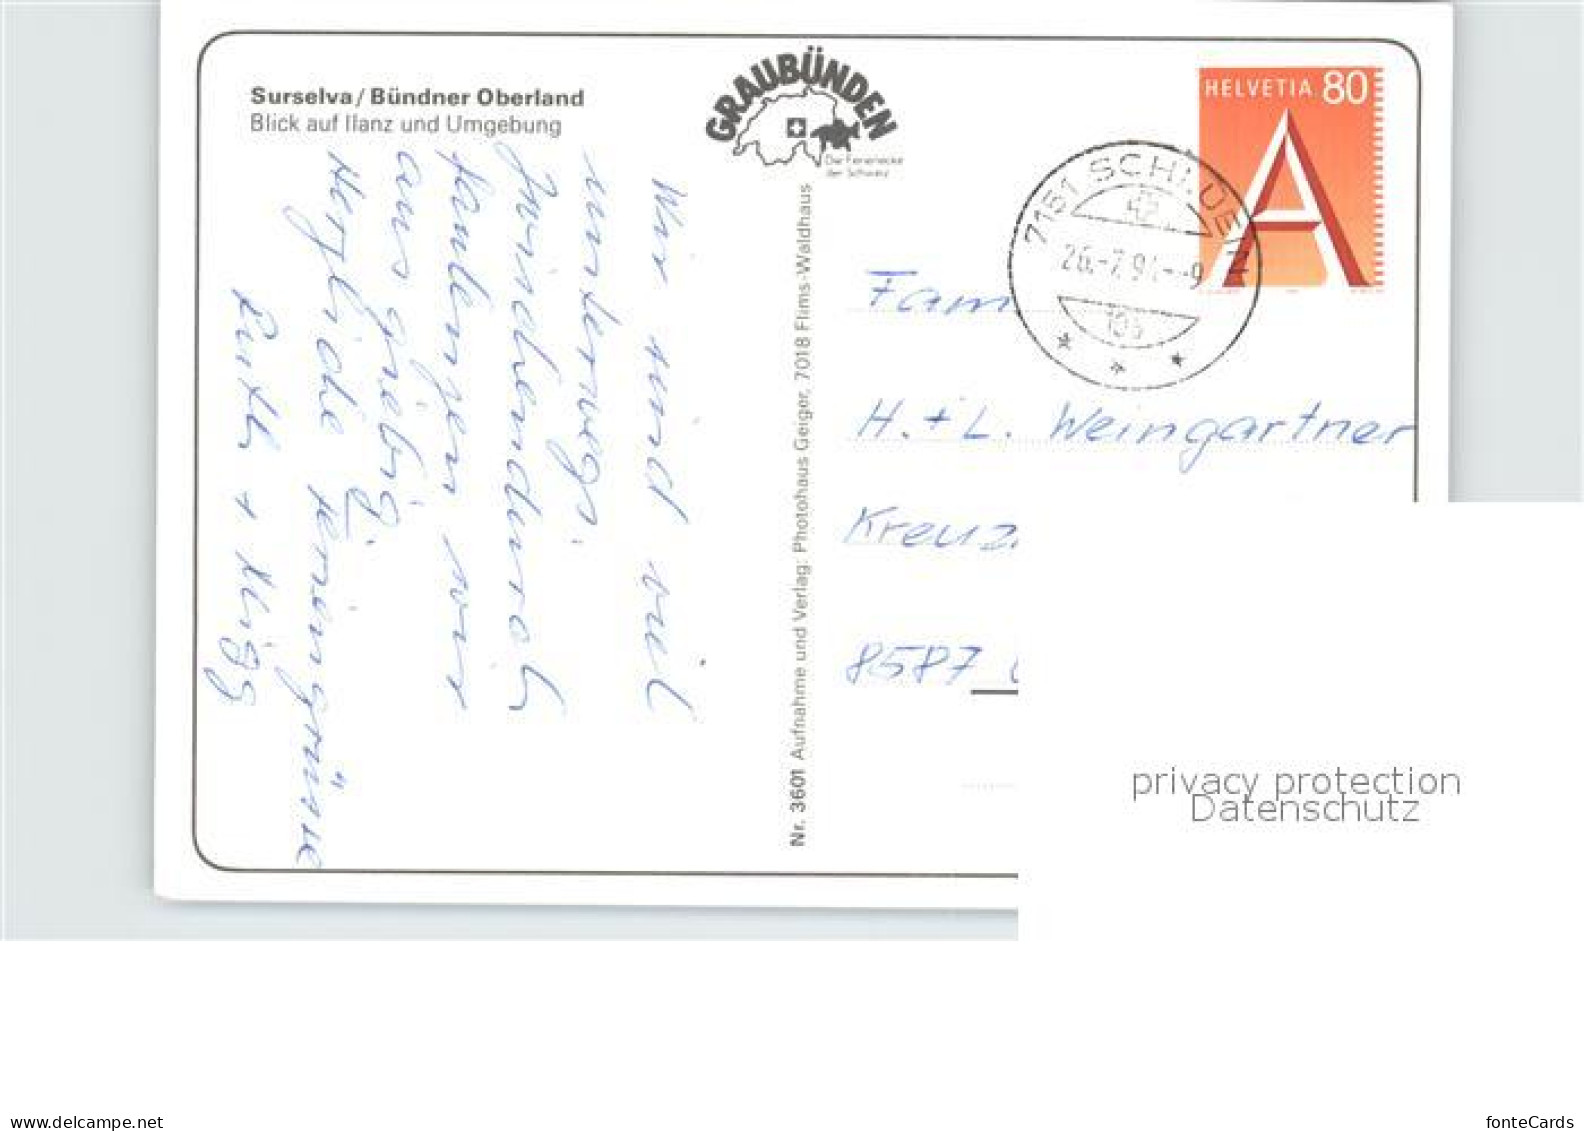 Surselva / Bündner Oberland
Blick auf Ilanz und Umgebung
GRAUBÜNDEN
Die Ferienecke
der Schweiz
HELVETIA 80
A
7151 SCHLUEIN
26.-7.94.-9
Wir sind viel
unterwegs.
Zwischendurch
faulenzen wir
aus giebig.
Herzliche Feriengrüsse
Ruth +
Nr. 3601 Aufnahme und Verlag: Photohaus Geiger, 7018 Flims-Waldhaus
Fam
H. + L. Weingartner
Kreuz
8587
privacy protection
Datenschutz
www.delcampe.net
fonteCards